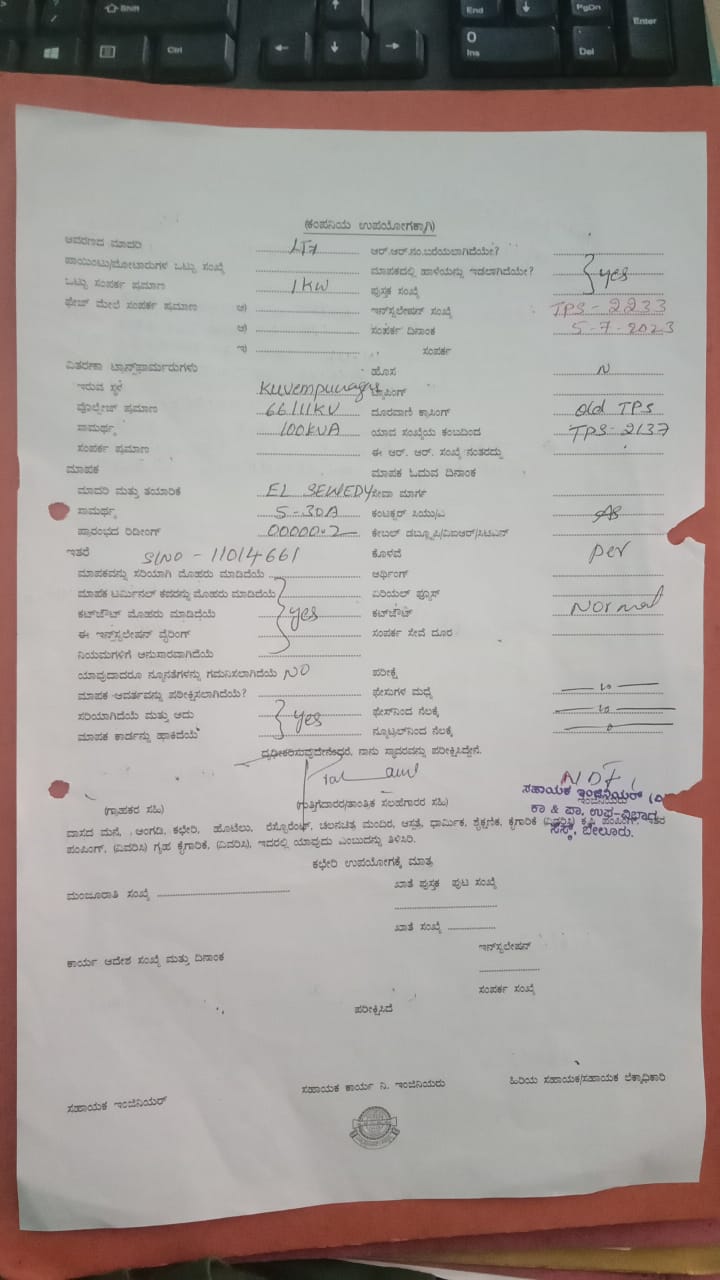 Shift
Ctrl
End
PgDn
Enter
0
Ins
Del
(ಕಂಪನಿಯ ಉಪಯೋಗಕ್ಕಾಗಿ)
ಆವರಣದ ಮಾದರಿ LT7 ಆರ್.ಆರ್.ನಂ.ಬರೆಯಲಾಗಿದೆಯೇ?
ಪಾಯಿಂಟು/ಮೋಟಾರುಗಳ ಒಟ್ಟು ಸಂಖ್ಯೆ ಮಾಪಕದಲ್ಲಿ ಹಾಳೆಯನ್ನು ಇಡಲಾಗಿದೆಯೇ? yes
ಒಟ್ಟು ಸಂಪರ್ಕ ಪ್ರಮಾಣ 1KW ಪುಸ್ತಕ ಸಂಖ್ಯೆ
ಫೇಜ್ ಮೇಲೆ ಸಂಪರ್ಕ ಪ್ರಮಾಣ ಅ) ಇನ್‌ಸ್ಟಲೇಷನ್ ಸಂಖ್ಯೆ TPS-2233
ಆ) ಸಂಪರ್ಕ ದಿನಾಂಕ 5-7-2023
ಇ) ಸಂಪರ್ಕ
ವಿತರಣಾ ಟ್ರಾನ್ಸ್‌ಫಾರ್ಮರುಗಳು ಹೊಸ N
ಇರುವ ಸ್ಥಳ Kuvempunagar ಟ್ಯಾಪಿಂಗ್
ವೊಲ್ಟೇಜ್ ಪ್ರಮಾಣ 66/11KV ದೂರವಾಣಿ ಕ್ರಾಸಿಂಗ್ old TPS
ಸಾಮರ್ಥ್ಯ 100KVA ಯಾವ ಸಂಖ್ಯೆಯ ಕಂಬದಿಂದ TPS-2137
ಸಂಪರ್ಕ ಪ್ರಮಾಣ ಈ ಆರ್. ಆರ್. ಸಂಖ್ಯೆ ನಂತರದ್ದು
ಮಾಪಕ ಮಾಪಕ ಓದುವ ದಿನಾಂಕ
ಮಾದರಿ ಮತ್ತು ತಯಾರಿಕೆ EL SEWEDY ಸೇವಾ ಮಾರ್ಗ
ಸಾಮರ್ಥ್ಯ 5-30A ಕಂಟಕ್ಟರ್ ಸಿಯು/ಎ
ಪ್ರಾರಂಭದ ರಿಡೀಂಗ್ 00000.2 ಕೇಬಲ್ ಡಬ್ಲ್ಯೂಪಿ/ವಿಐಆರ್/ಸಿಟಿಎನ್
ಇತರೆ Sl NO - 11014661 ಕೊಳವೆ per
ಮಾಪಕವನ್ನು ಸರಿಯಾಗಿ ಮೊಹರು ಮಾಡಿದೆಯೆ ಅರ್ಥಿಂಗ್
ಮಾಪಕ ಟರ್ಮಿನಲ್ ಕವರನ್ನು ಮೊಹರು ಮಾಡಿದೆಯೆ ಏರಿಯೆಲ್ ಫ್ಯೂಸ್
ಕಟ್‌ಔಟ್ ಮೊಹರು ಮಾಡಿದೆಯೆ yes ಕಟ್‌ಔಟ್ Normal
ಈ ಇನ್‌ಸ್ಟಲೇಷನ್ ವೈರಿಂಗ್ ಸಂಪರ್ಕ ಸೇವೆ ದೂರ
ನಿಯಮಗಳಿಗೆ ಅನುಸಾರವಾಗಿದೆಯೆ
ಯಾವುದಾದರೂ ನ್ಯೂನತೆಗಳನ್ನು ಗಮನಿಸಲಾಗಿದೆಯೆ NO ಪರೀಕ್ಷೆ
ಮಾಪಕ ಆವರ್ತವನ್ನು ಪರೀಕ್ಷಿಸಲಾಗಿದೆಯೆ? ಫೇಸುಗಳ ಮಧ್ಯೆ
ಸರಿಯಾಗಿದೆಯೆ ಮತ್ತು ಅದು yes ಫೇಸ್‌ನಿಂದ ನೆಲಕ್ಕೆ
ಮಾಪಕ ಕಾರ್ಡನ್ನು ಹಾಕಿದೆಯೆ ನ್ಯೂಟ್ರಲ್‌ನಿಂದ ನೆಲಕ್ಕೆ
ದೃಢೀಕರಿಸುವುದೇನೆಂದರೆ, ನಾನು ಸ್ಥಾವರವನ್ನು ಪರೀಕ್ಷಿಸಿದ್ದೇನೆ.
(ಗ್ರಾಹಕರ ಸಹಿ) (ಗುತ್ತಿಗೆದಾರರ/ತಾಂತ್ರಿಕ ಸಲಹೆಗಾರರ ಸಹಿ)
ಸಹಾಯಕ ಇಂಜಿನಿಯರ್
ಕಾ & ಪಾ, ಉಪ-ವಿಭಾಗ
ಸೆಸ್ಕ್, ಬೇಲೂರು.
ವಾಸದ ಮನೆ, ಅಂಗಡಿ, ಕಛೇರಿ, ಹೋಟೆಲು, ರೆಸ್ಟೋರೆಂಟ್, ಚಲನಚಿತ್ರ ಮಂದಿರ, ಆಸ್ಪತ್ರೆ, ಧಾರ್ಮಿಕ, ಶೈಕ್ಷಣಿಕ, ಕೈಗಾರಿಕೆ (ವಿವರಿಸಿ) ಕೃಷಿ ಪಂಪಿಂಗ್, ಇತರ
ಪಂಪಿಂಗ್, (ವಿವರಿಸಿ) ಗೃಹ ಕೈಗಾರಿಕೆ, (ವಿವರಿಸಿ), ಇದರಲ್ಲಿ ಯಾವುದು ಎಂಬುದನ್ನು ತಿಳಿಸಿರಿ.
ಕಛೇರಿ ಉಪಯೋಗಕ್ಕೆ ಮಾತ್ರ
ಮಂಜೂರಾತಿ ಸಂಖ್ಯೆ ಖಾತೆ ಪುಸ್ತಕ ಪುಟ ಸಂಖ್ಯೆ
ಖಾತೆ ಸಂಖ್ಯೆ
ಕಾರ್ಯ ಆದೇಶ ಸಂಖ್ಯೆ ಮತ್ತು ದಿನಾಂಕ ಇನ್‌ಸ್ಟಲೇಷನ್
ಸಂಪರ್ಕ ಸಂಖ್ಯೆ
ಪರೀಕ್ಷಿಸಿದೆ
ಸಹಾಯಕ ಇಂಜಿನಿಯರ್ ಸಹಾಯಕ ಕಾರ್ಯ ನಿ. ಇಂಜಿನಿಯರು ಹಿರಿಯ ಸಹಾಯಕ/ಸಹಾಯಕ ಲೆಕ್ಕಾಧಿಕಾರಿ